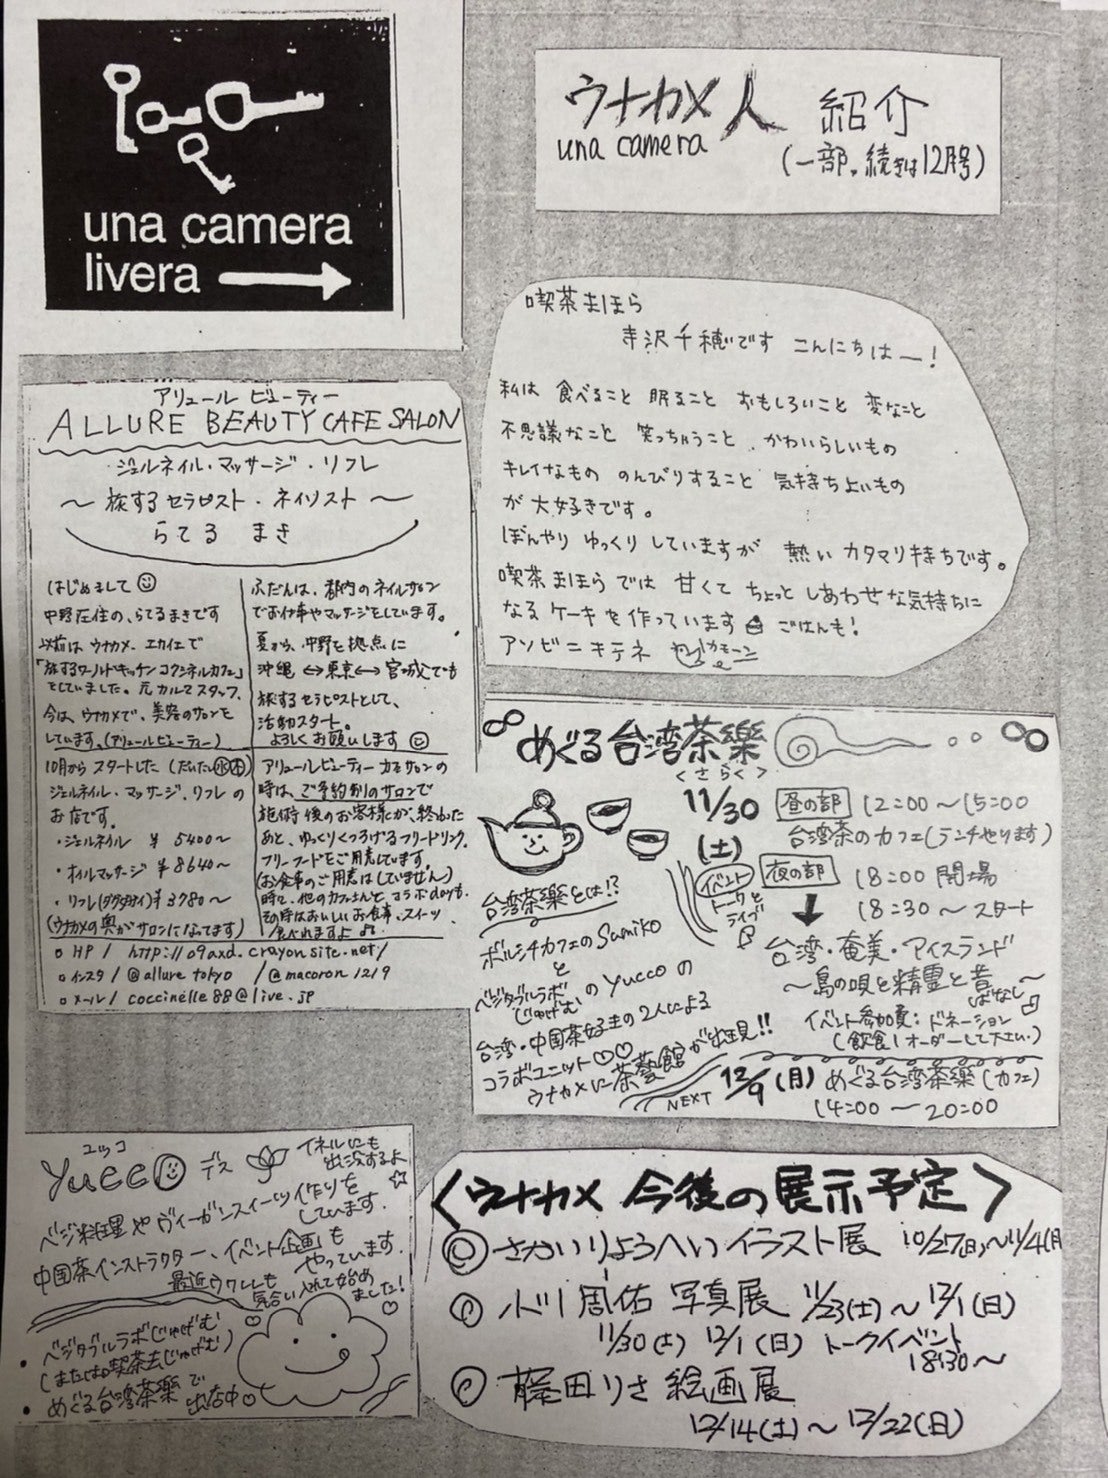 una camera
livera
ウナカメ人 紹介
una camera
(一部。続きは12月号)
喫茶まほら
寺沢千穂です こんにちはー!
私は 食べること 眠ること おもしろいこと 変なこと
不思議なこと 笑っちゃうこと かわいらしいもの
キレイなもの のんびりすること 気持ちよいもの
が大好きです。
ぼんやり ゆっくり していますが 熱いカタマリ持ちです。
喫茶まほら では 甘くて ちょっと しあわせな気持ちに
なる ケーキを 作っています ごはんも!
アソビニキテネ
アリュール ビューティー
ALLURE BEAUTY CAFE SALON
ジェルネイル・マッサージ・リフレ
〜 旅するセラピスト・ネイリスト 〜
らてる まき
はじめまして
中野在住の、らてるまきです
以前は ウナカメ、エカイエで
「旅するワールドキッチン コクシネルカフェ」
をしていました。元カルマスタッフ。
今は、ウナカメで、美容のサロンを
しています。(アリュールビューティー)
ふだんは、都内のネイルサロン
でお仕事やマッサージをしています。
夏から、中野を拠点に
沖縄 ↔ 東京 ↔ 宮城でも
旅するセラピストとして、
活動スタート。
よろしくお願いします
10月からスタートした (だいたい水木)
ジェルネイル・マッサージ・リフレの
お店です。
・ジェルネイル ¥ 5400〜
・オイルマッサージ ¥8640〜
・リフレ ¥3780〜
(ウナカメの奥がサロンになってます)
アリュールビューティーカフェサロンの
時は、ご予約制のサロンで
施術後のお客様が、終わった
あと、ゆっくりくつろげるフリードリンク、
フリーフードをご用意しています。
(お食事のご用意はしていません)
時々、他のカフェさんと コラボdayも。
その時はおいしいお食事、スイーツ
食べれますよ♪
○ HP / http://o9axd.crayonsite.net/
○ インスタ / @allure tokyo / @macoron 1219
○ メール / coccinelle88@live.jp
めぐる台湾茶樂
<さらく>
11/30
(土)
昼の部 12:00〜15:00
台湾茶のカフェ(ランチやります)
夜の部 18:00 開場
18:30〜スタート
イベント
トークと
ライブ
台湾・奄美・アイスランド
〜島の唄と精霊と昔ばなし〜
イベント参加費: ドネーション
(飲食1オーダーして下さい)
台湾茶樂とは!?
ボルシチカフェのSumiko
と
ベジタブルラボじゅげむのyuccoの
台湾・中国茶好きの2人による
コラボユニット♡♡
ウナカメに茶藝館が出現!!
NEXT 12/9(月) めぐる台湾茶樂(カフェ)
14:00〜20:00
ユッコ
yucco デス
イネルにも
出没するよ☆
ベジ料理やヴィーガンスイーツ作りを
しています。
中国茶インストラクター、イベント企画も
やっています。
最近ウクレレも
気合い入れて始め
ました!
・ベジタブルラボじゅげむ
(または喫茶去じゅげむ)
・めぐる台湾茶樂で
出店中♡
〈ウナカメ 今後の展示予定〉
◎さかいりょうへいイラスト展 10/27(日)〜11/4(月
◎小川周佑 写真展 11/23(土)〜12/1(日)
11/30(土) 12/1(日) トークイベント
18:30〜
◎藤田りさ 絵画展
12/14(土)〜12/22(日)